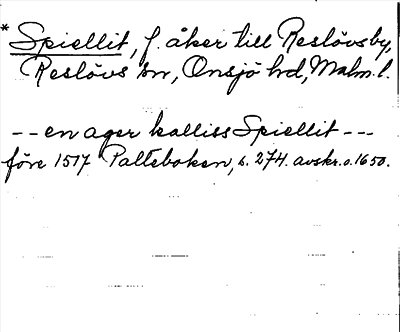 * Spiellit, f. åker till Reslövsby,
Reslövs sn, Onsjö hd, Malm. l.
-- en ager kalliss Spiellit ---
före 1517 Palteboken, s. 274. avskr. o. 1650.